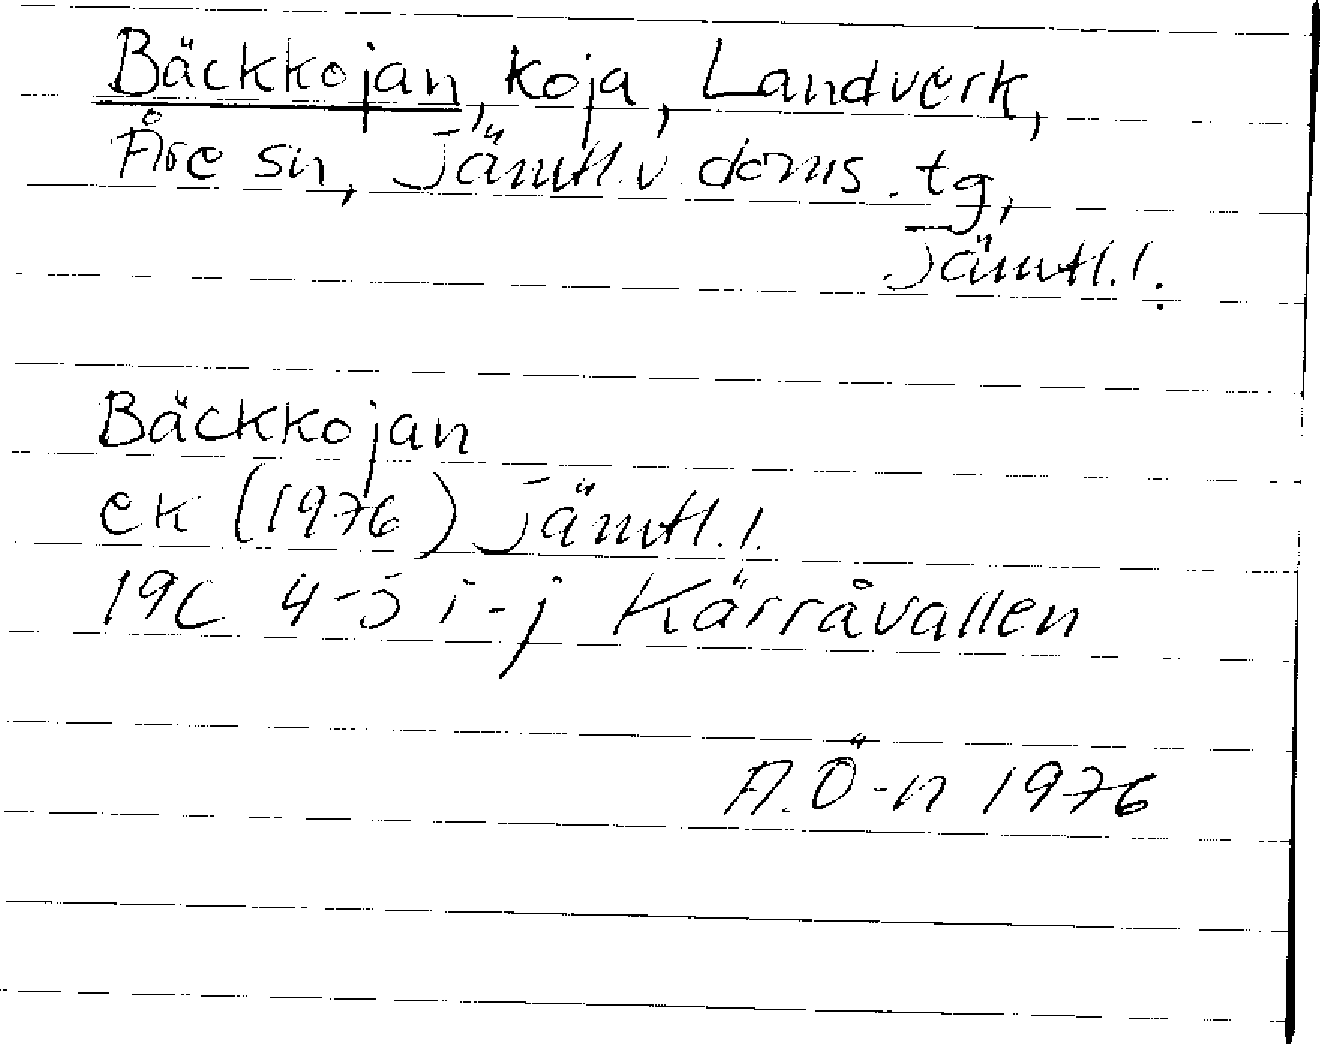 Bäckkojan, koja, Landverk,
Åre sn, Jämtl. v doms. tg,
Jämtl. l.
Bäckkojan
ek (1976) Jämtl. l.
19C 4-5 i-j Kärråvallen
A. Ö-n 1976